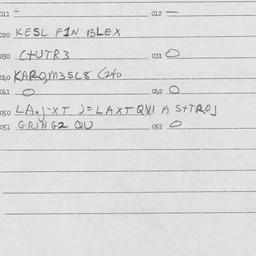 011 – 012 —
020 KESL FIN BLEX
030 C+UTR3 031 O
060 KARQM3SL8 (240
061 O 062 O
050 LA.J-XT )=LAXTQVI A S+TROJ
051 GRING2 QU 052 O